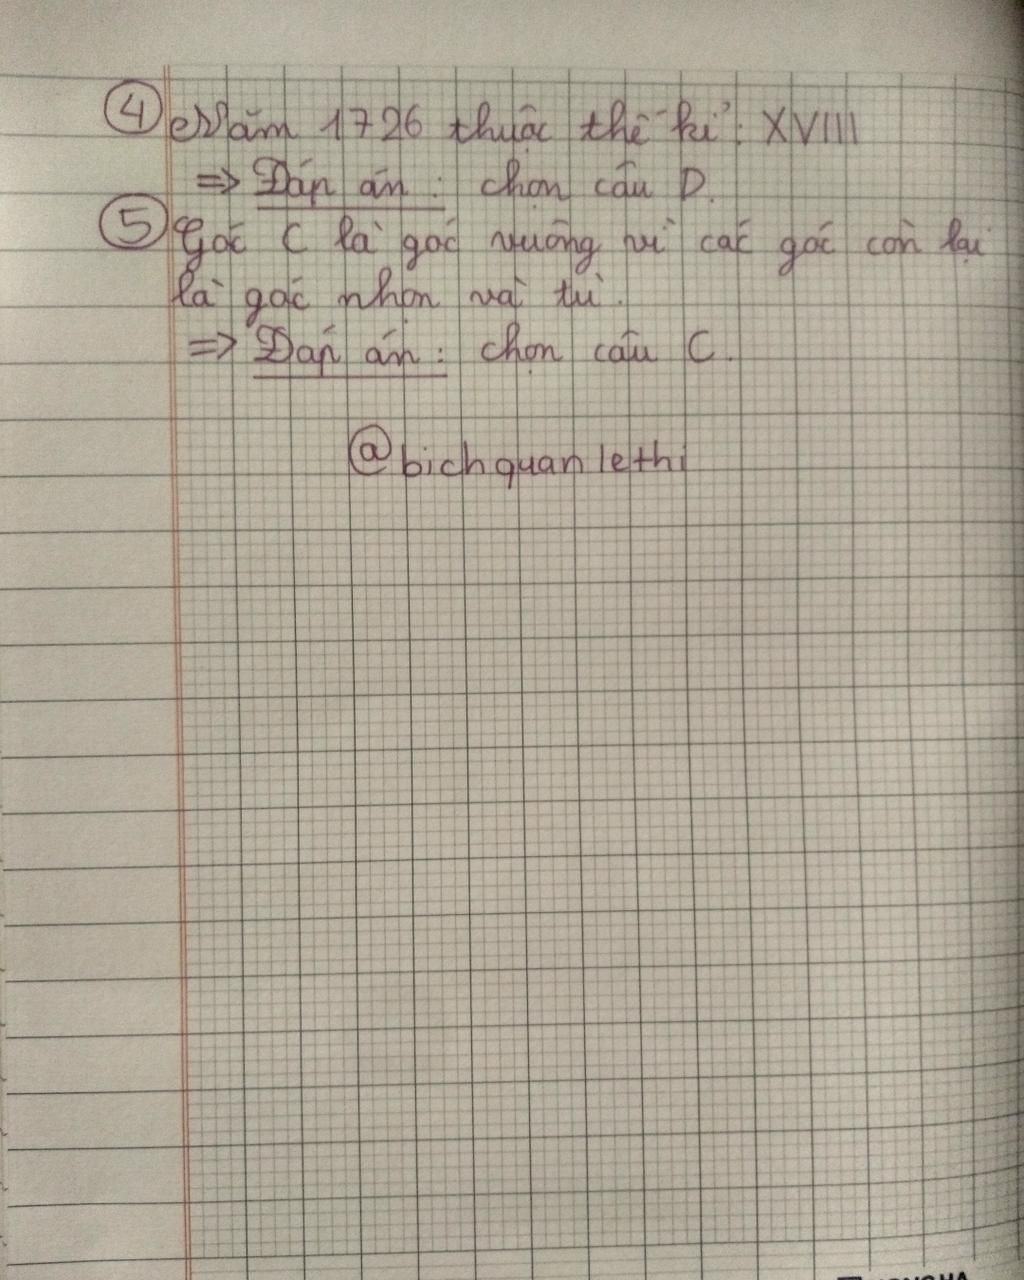 ④ Năm 1726 thuộc thế kỉ: XVIII
=> Đáp án: chọn câu D.
⑤ Góc C là góc vuông vì các góc còn lại
là góc nhọn và tù.
=> Đáp án: chọn câu C.
@bichquanlethi